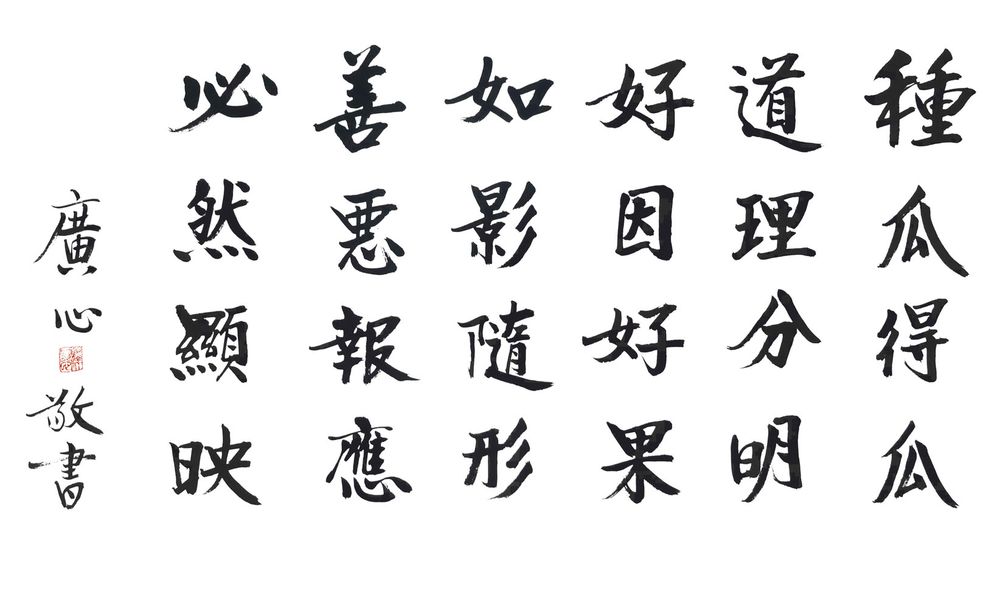 種瓜得瓜
道理分明
好因好果
如影隨形
善惡報應
必然顯映
廣心敬書